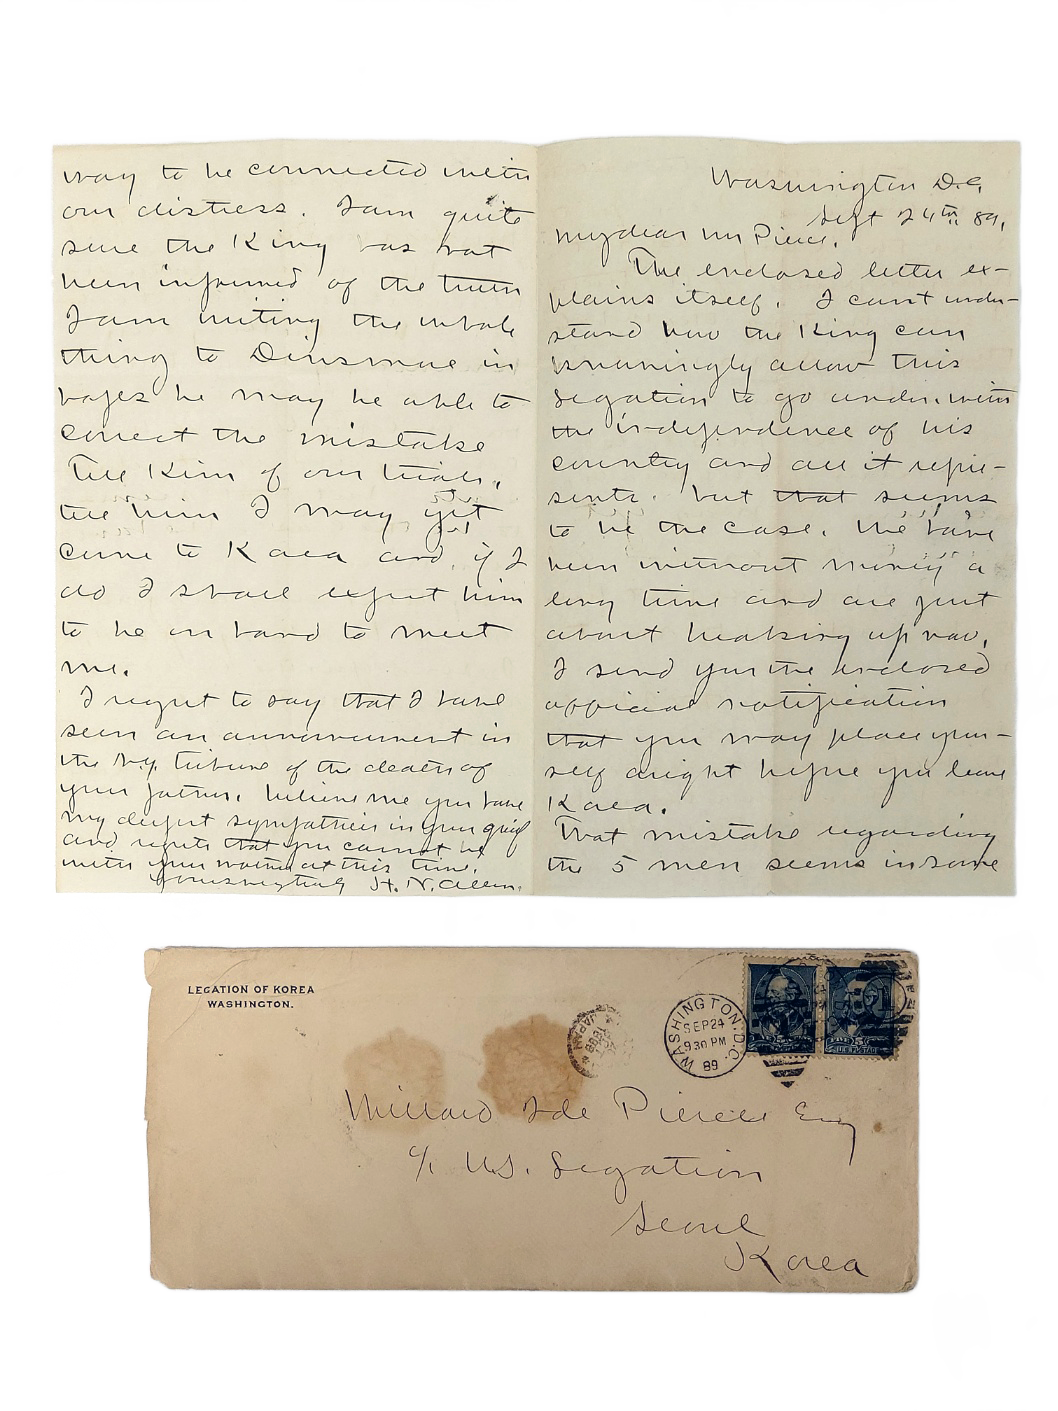 Washington D.C.
Sept 24th 89.
My dear Mr Pierce,
The enclosed letter ex-
plains itself. I cant under-
stand how the King can
knowingly allow this
Legation to go under, with
the independence of his
country and all it repre-
sents. but that seems
to be the case. We have
been without money a
long time and are just
about breaking up now.
I send you the enclosed
official notification
that you may place your-
self aright before you leave
Korea.
That mistake regarding
the 5 men seems in some
way to be connected with
our distress. I am quite
sure the King has not
been informed of the truth
I am writing the whole
thing to Dinsmore in
hopes he may be able to
correct the mistake
Tell Kim of our trials,
tell him I may yet
come to Korea and, if I
do I shall expect him
to be on hand to meet
me.
I regret to say that I have
seen an announcement in
the N.Y. Tribune of the death of
your father, believe me you have
my deepest sympathies in your grief
and regrets that you cannot be
with your mother at this time.
Yours regretfully H. N. Allen.
LEGATION OF KOREA
WASHINGTON.
JAPAN
WASHINGTON, D.C.
SEP 24
930 PM
89
U.S. POSTAGE
Millard Ide Pierce Esq
c/o U.S. Legation
Seoul
Korea